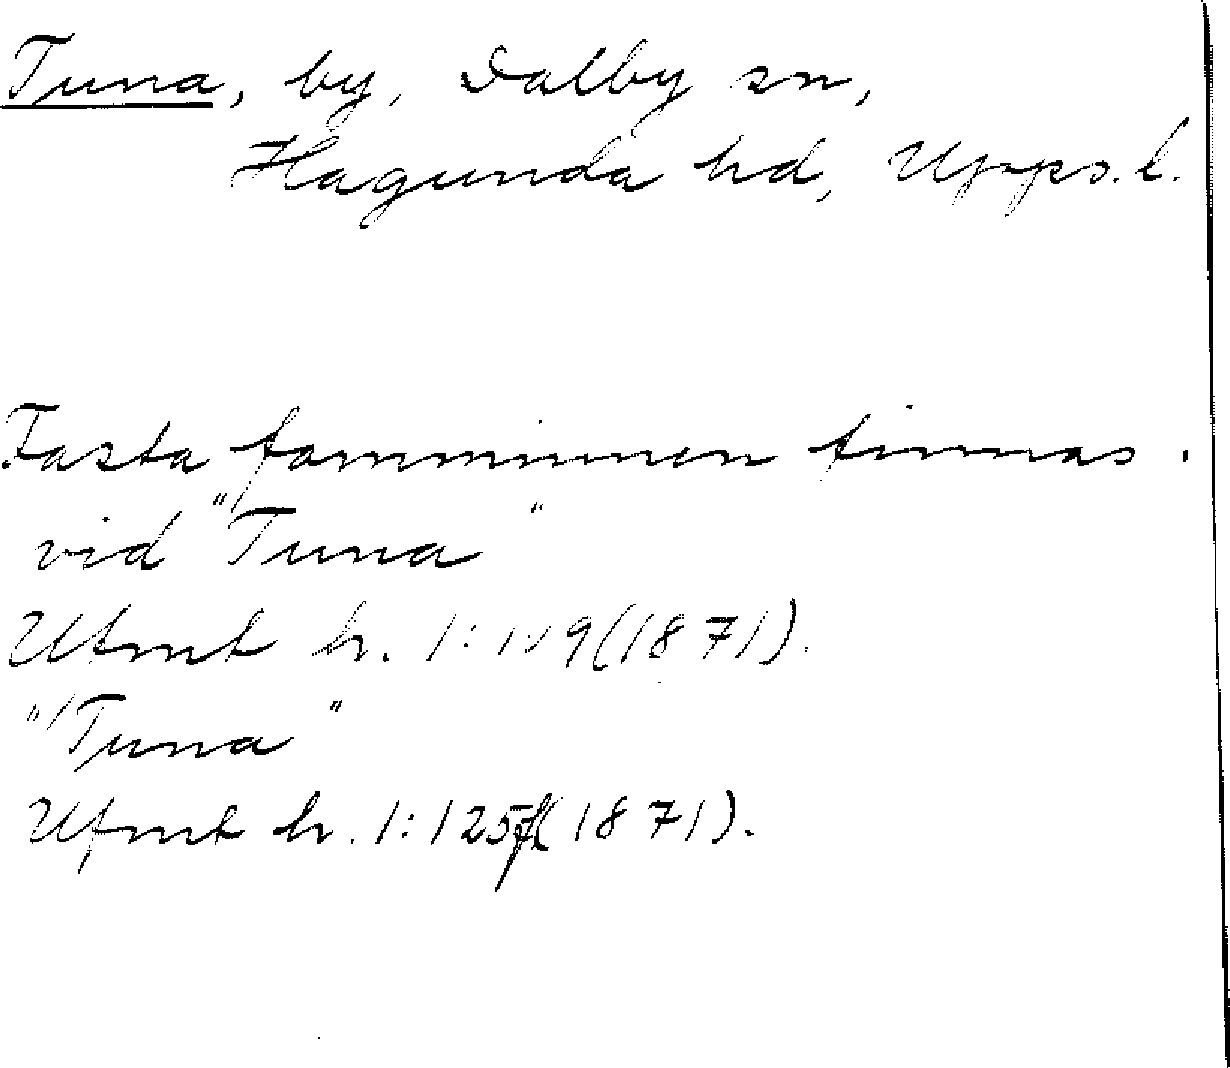 Tuna, by, Dalby sn,
Hagunda hd, Upps. l.
Fasta fornminnen finnas
vid "Tuna"
Ufmt h. 1: (1871).
"Tuna"
Ufmt h. 1:125 f (1871).